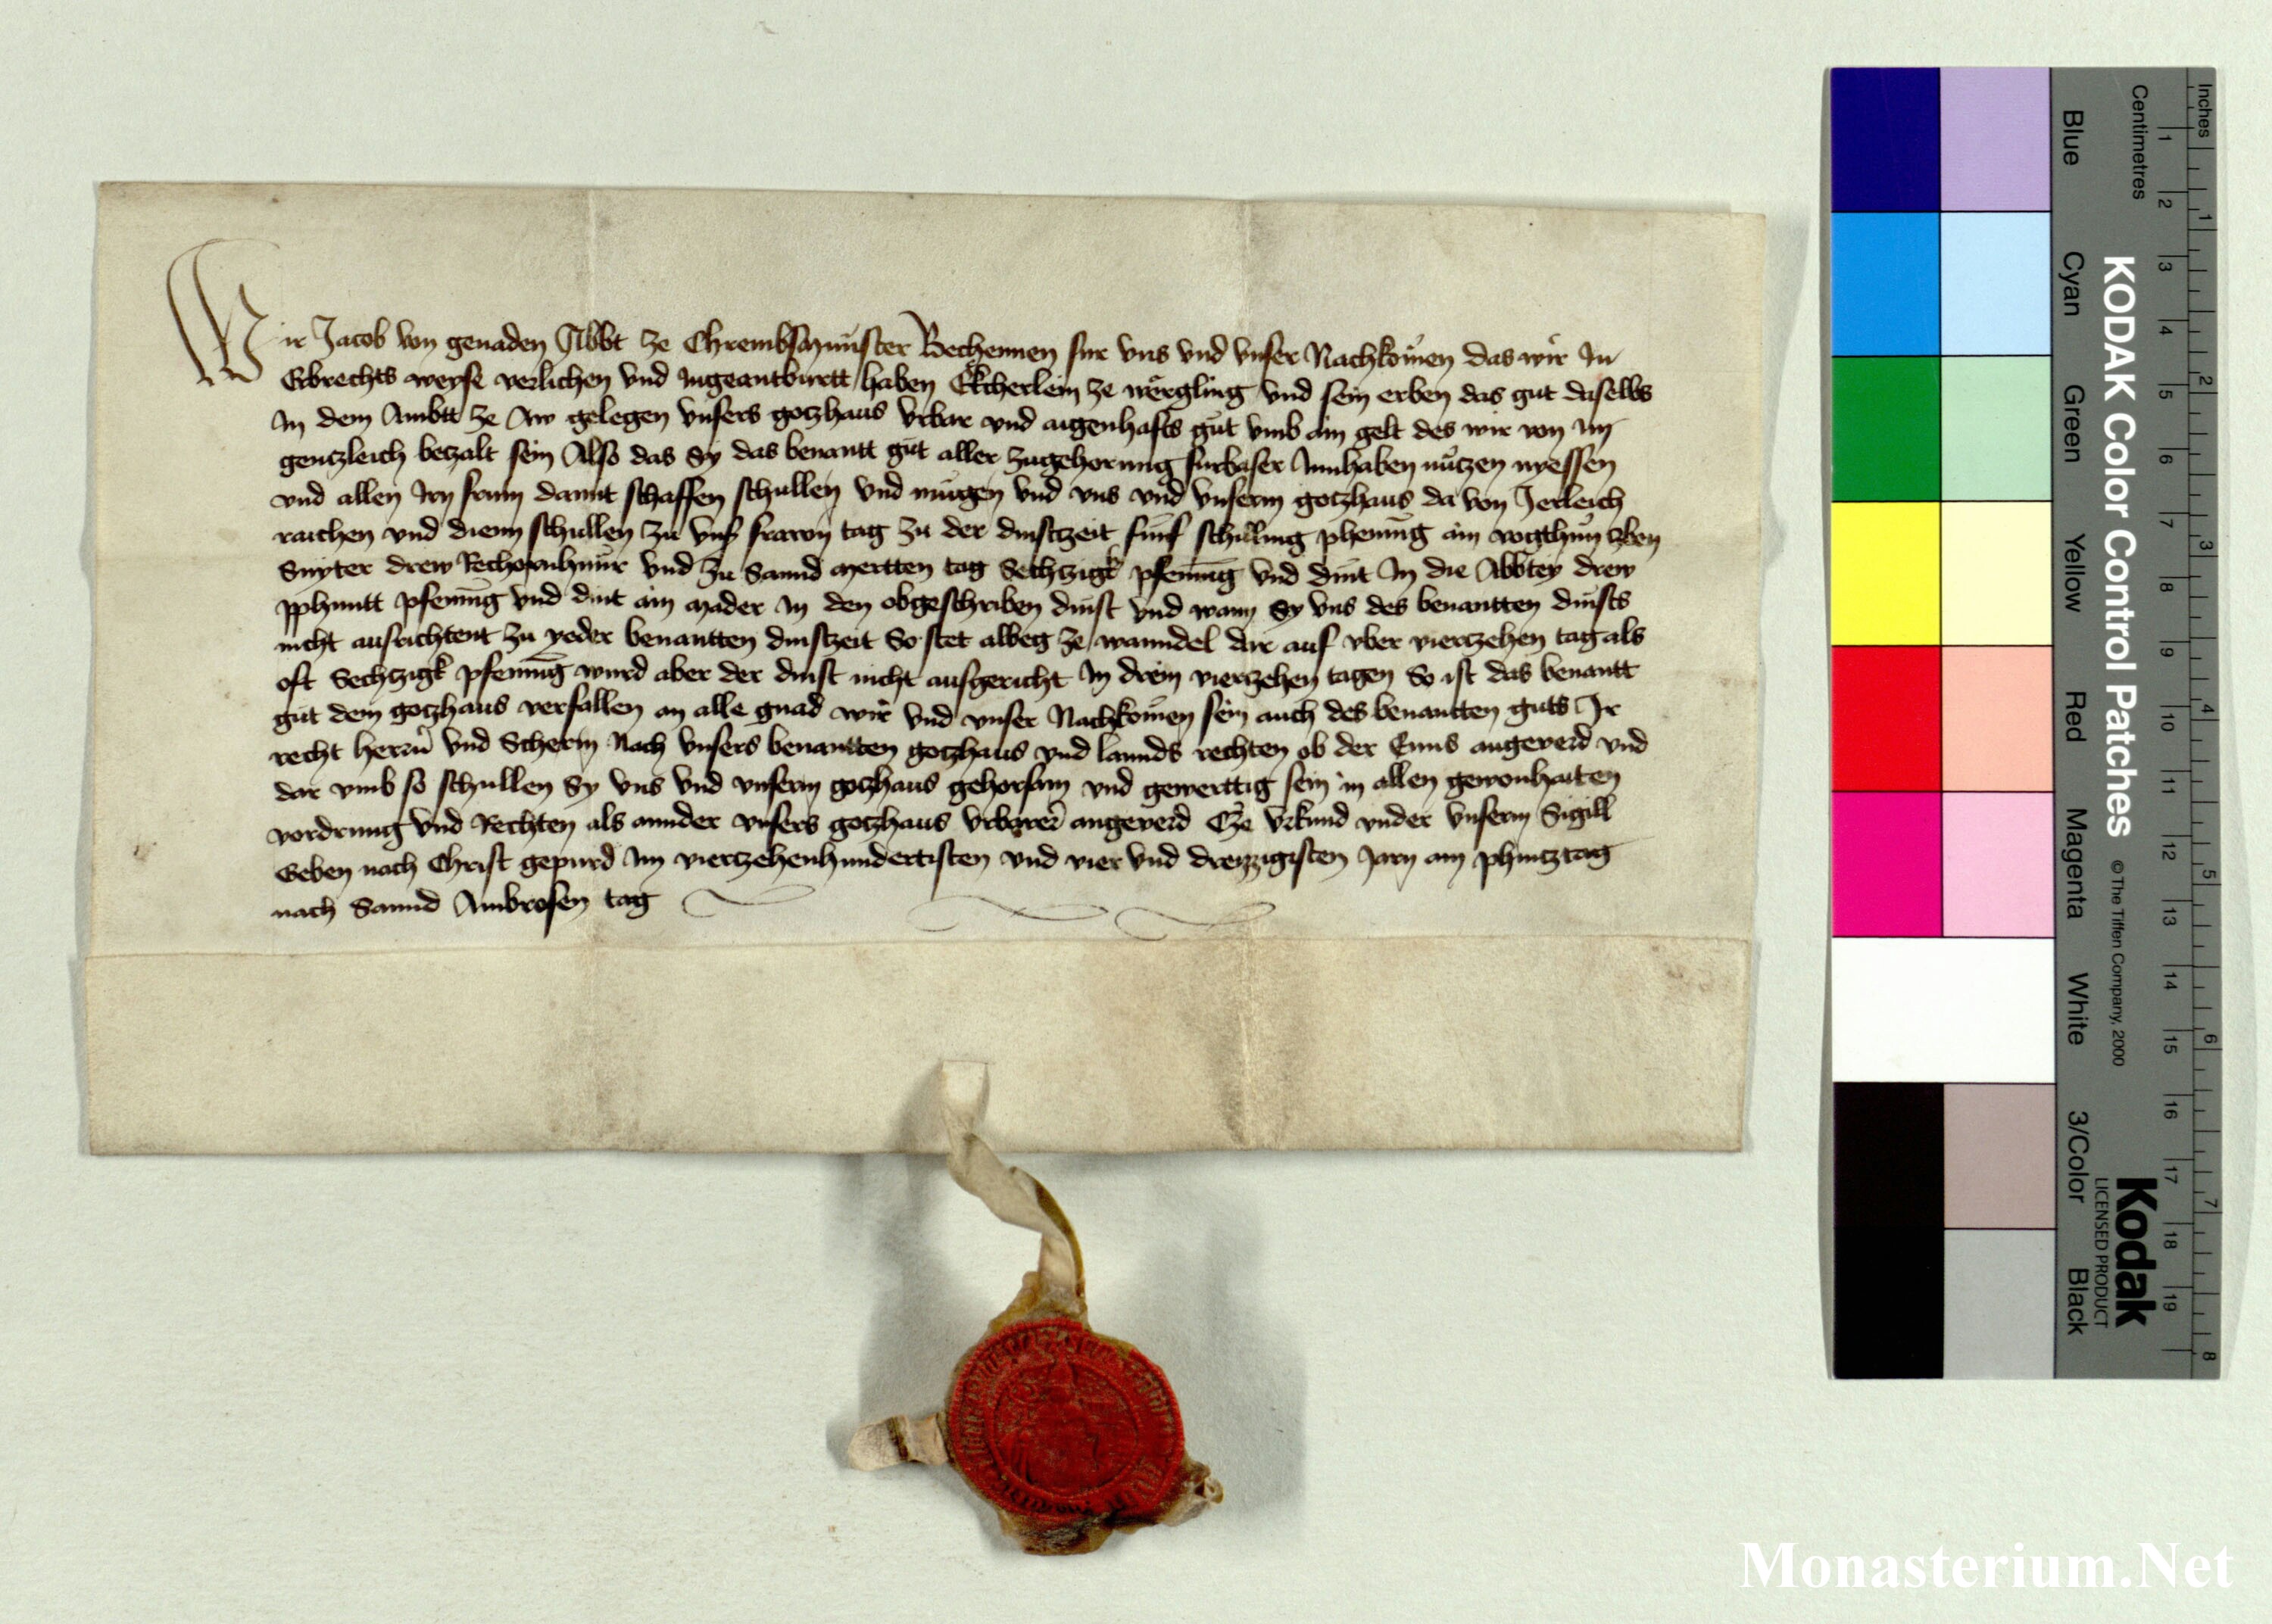 Wir Jacob von genaden Abbt ze Chrembsmuͤnster Bechennen fur vns vnd vnser Nachkomen das wir In
Erbrechts weyse verlichen vnd Ingeantburtt haben Ekcherlein ze wergling vnd sein erben das gut daselbs
In dem Ambtt ze Aw gelegen vnsers gotzhaus vrbar vnd aigenhafts gut vmb ain gelt des wir von Im
gentzleich betzalt sein Also das Sy das benantt gut aller zugehorung furbaser Innhaben nutzen nyessen
vnd allen Irn frum damit schaffen schullen vnd mugen vnd vns vnd vnserm gotzhaus da von Jerleich
raichen vnd dienn schullen zu vnser frawn tag zu der dinstzeit funf schilling phening ain vogthun zben
Snyter drew vnd zu Sannd Mertten tag Sechzigk pfening vnd dint In die Abbtey drew
phuntt pfening vnd dint ain mader In den obgeschriben dinst vnd wann Sy vns des benantten dinsts
nicht ausrichtent zu yeder benantten dinstzeit So stet albeg ze wanndel dar auf vber viertzehen tag als
oft Sechzigk pfening wurd aber der dinst nicht ausgericht In drein viertzehen tagen So ist das benantt
gut dem gotzhaus verfallen an alle gnad wir vnd vnser Nachkomen sein auch des benantten guts Ir
recht herrn vnd Scherm Nach vnsers benantten gotzhaus vnd lannds rechten ob der Enns angeverd vnd
dar vmb so schullen Sy vns vnd vnserm gotzhaus gehorsam vnd gewerttig sein in allen gewonhaiten
vordrung vnd Rechten als annder vnsers gotzhaus vrbarer angeverd Cze vrkund vnder vnserm Sigill
Geben nach Christ gepurd Im viertzehenhundertisten vnd vier vnd dreyzzigisten Jarn am phintztag
nach Sannd Ambrosen tag
Inches
Centimetres
1 2 3 4 5 6 7 8
1 2 3 4 5 6 7 8 9 10 11 12 13 14 15 16 17 18 19
KODAK Color Control Patches
© The Tiffen Company, 2000
Kodak
LICENSED PRODUCT
Blue Cyan Green Yellow Red Magenta White 3/Color Black
Monasterium.Net